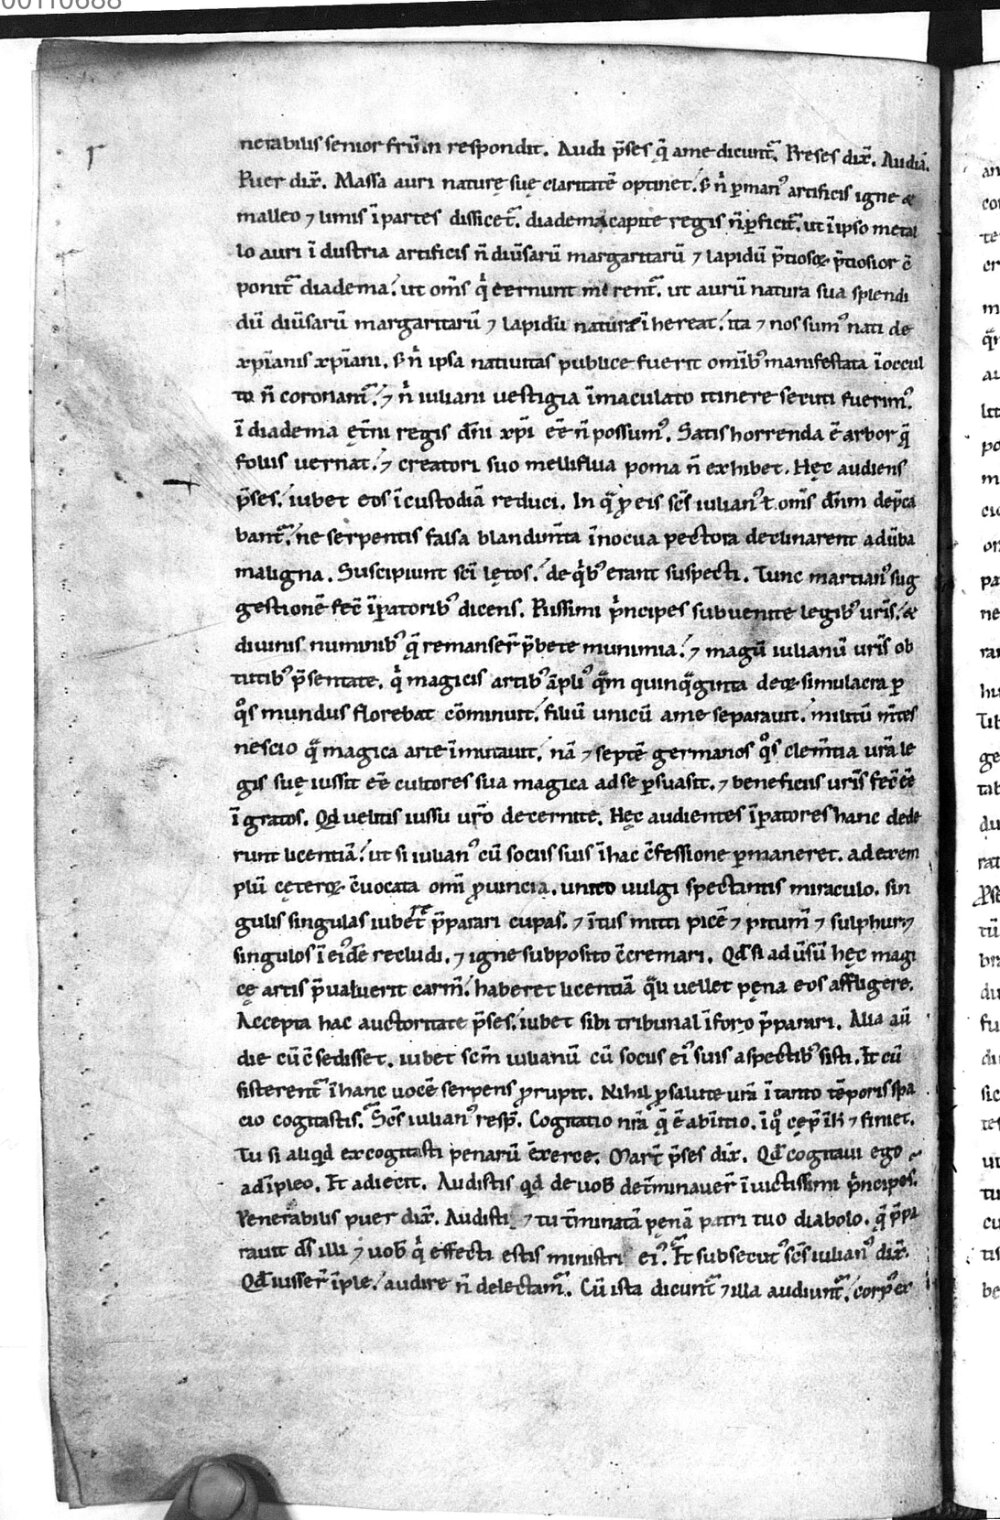 00110688
nerabilis senior frūm respondit. Audi p̄ses q̄ a me dicunt᷑. Preses dix̄. Audiā.
Puer dix̄. Massa auri naturę suę claritatē optinet. s; n̄ ꝑ manꝰ artificis igne &
malleo ⁊ limis ī partes dissicet᷑. diadema capite regis n̄ ꝑficit᷑. ut ī ipso metal
lo auri īdustria artificis n̄ diūsarū margaritarū ⁊ lapidū p̄tiosoꝝ p̄tiosior c̄
ponit᷑ diadema. ut om̄s q̇ cernunt mirent᷑. ut aurū natura sua splendi
dū diūsarū margaritarū ⁊ lapidū naturę īhereat. ita ⁊ nos sumꝰ nati de
xp̄ianis xp̄iani. s; n̄ ipsa nativitas publice fuerit om̄ibꝰ manifestata ī occul
to n̄ coronam᷑. ⁊ n̄ iuliani vestigia īmaculato itinere secuti fuerimꝰ.
ī diadema ęt̄ni regis dn̄i xp̄i eē n̄ possumꝰ. Satis horrenda ē arbor q̄
foliis vernat. ⁊ creatori suo melliflua poma n̄ exhibet. Hęc audiens
p̄ses. iubet eos ī custodiā reduci. In q̄ ꝓ eis sc̄s iulianꝰ ⁊ om̄s dn̄m dep̄ca
bant᷑. ne serpentis falsa blandim̄ta īnocua pectora declinarent ad ūba
maligna. Suscipiunt sc̄i lętos. de q̇bꝰ erant suspecti. Tunc martianꝰ sug
gestionē fec̄ īꝑatoribꝰ dicens. Piissimi p̄ncipes subvenite legibꝰ vr̄is. &
divinis numinibꝰ q̄ remanser̄ p̄bete munimia. ⁊ magū iulianū vr̄is ob
tutibꝰ p̄sentate. q̇ magicis artibꝰ āpliꝰ q̄m quinq̄ginta deoꝝ simulacra ꝑ
q̊s mundus florebat cōminuit. filiū unicū a me separavit. militū m̄tes
nescio q̄ magica arte īmutavit. nā ⁊ septē germanos q̊s clem̄tia vr̄a le
gis suę iussit eē cultores sua magica ad se ꝑsuasit. ⁊ beneficiis vr̄is fec̄ eē
īgratos. Qd̄ velitis iussu vr̄o decernite. Hęc audientes īꝑatores hanc dede
runt licentiā. ut si iulianꝰ cū sociis suis ī hac c̄fessione ꝑmaneret. ad exem
plū cęteroꝝ c̄vocata om̄i ꝓvincia. unico vulgi spectantis miraculo. sin
gulis singulas iuberet p̄parari cupas. ⁊ ītus mitti picē ⁊ pitum̄ ⁊ sulphur. ⁊
singulos ī eiꝰdē recludi. ⁊ igne subposito c̄cremari. Qd̄ si ad ūsū hęc magi
cę artis p̄valuerit carm̄. haberet licentiā q̄ vellet pęna eos affligere.
Accepta hac auctoritate p̄ses. iubet sibi tribunal ī foro p̄parari. Alia aū
die cū c̄sedisset. iubet scm̄ iulianū cū sociis eiꝰ suis aspectibꝰ sisti. Et cū
sisterent᷑ ī hanc vocē serpens ꝓrupit. Nihil ꝓ salute vr̄a ī tanto tēporis spa
cio cogitastis. Sc̄s iulianꝰ resp̄. Cogitatio nr̄a q̄ ē ab initio. ī q̊ cęp̄ ī h̄ ⁊ finiet.
Tu si aliqd excogitasti penarū ēxerce. Mart̄ p̄ses dix̄. Qd̄ cogitavi ego
adīpleo. Et adiecit. Audistis qd de vob̄ det̄minaver̄ īvictissimi p̄ncipes.
Venerabilis puer dix̄. Audisti ⁊ tu t̄minatā penā patri tuo diabolo. q̄ p̄pa
ravit ds̄ illi ⁊ vob̄ q̇ effecti estis ministri eiꝰ. Et subsecutꝰ sc̄s iulianꝰ dix̄.
Qd̄ iusser̄ īple. audire n̄ delectam᷑. Cū ista dicunt᷑ ⁊ illa audiunt᷑. corꝑ er